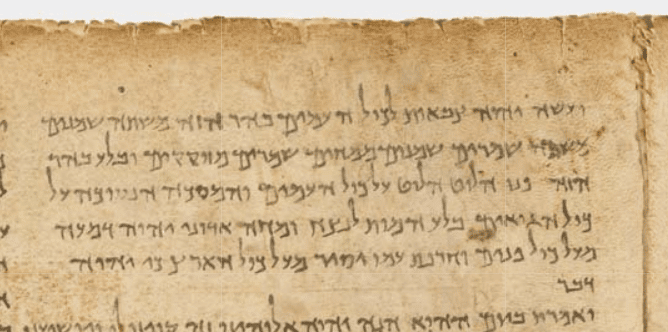 ועשה יהוה צבאות לכול העמים בהר הזה משתה שמנים
משתה שמרים שמנים ממחים שמרים מזוקקים ובלע בהר
הזה פני הלוט הלוט על כול העמים והמסכה הנסוכה על
כול הגואים בלע המות לנצח ומחה אדוני יהוה דמעה
מעל כול פנים וחרפת עמו יסיר מעל כול הארץ כי יהוה
דבר
ואמרת ביום ההוא הנה יהוה אלוהינו זה